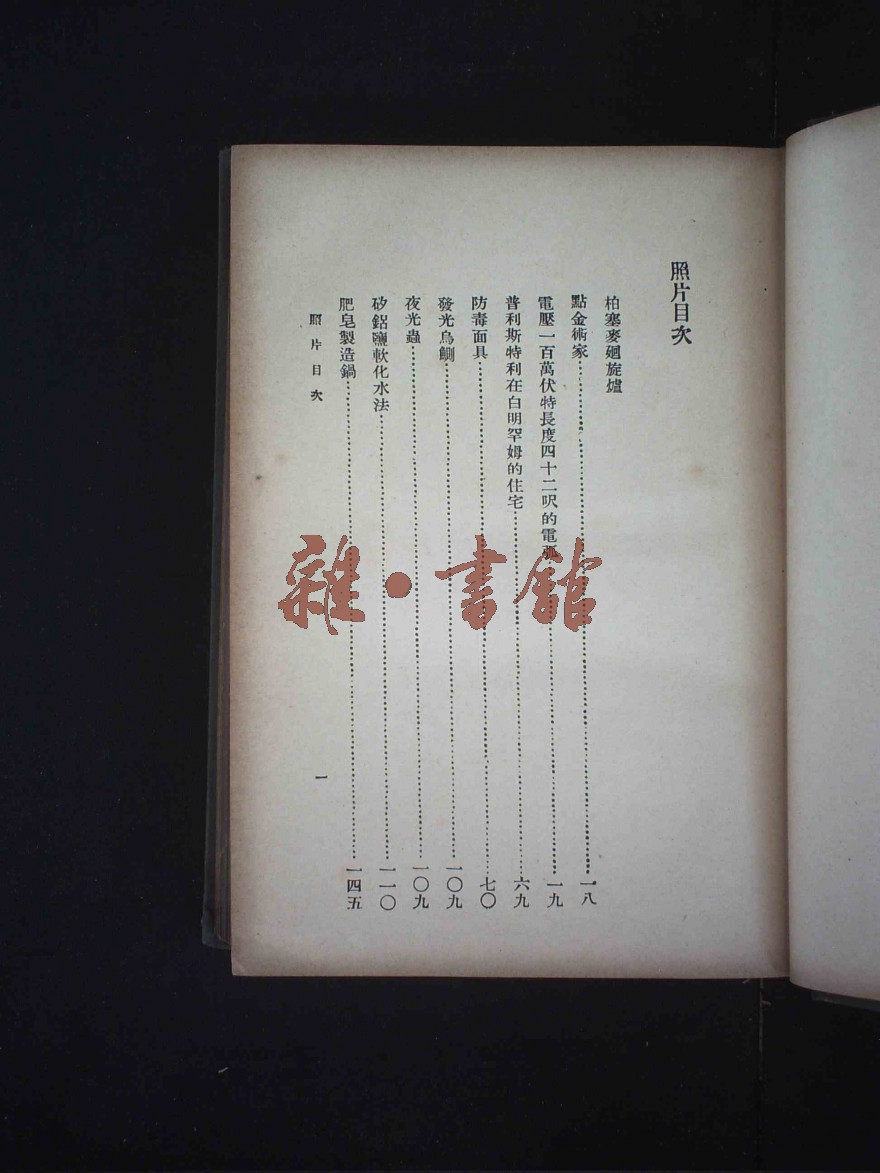 照片目次
柏塞麥廻旋爐
點金術家⋯⋯一八
電壓一百萬伏特長度四十二呎的電弧⋯⋯一九
普利斯特利在白明罕姆的住宅⋯⋯六九
防毒面具⋯⋯七〇
發光烏鰂⋯⋯一〇九
夜光蟲⋯⋯一〇九
矽鋁鹽軟化水法⋯⋯一一〇
肥皂製造鍋⋯⋯一四五
照片目次
一
雜·書館